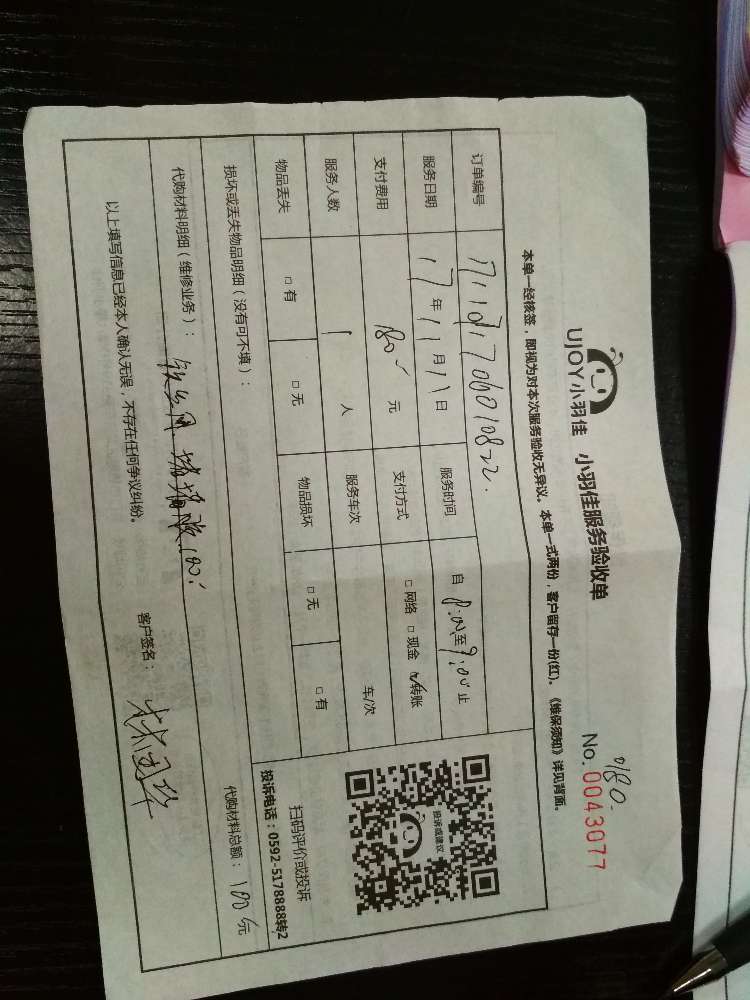 UJOY小羽佳 小羽佳服务验收单
0180.
No. 0043077
本单一经核签，即视为对本次服务验收无异议。本单一式两份，客户留存一份(红)。《维保须知》详见背面。
订单编号
服务日期 17年11月11日 服务时间 自8:00至9:00止
支付费用 180元 支付方式 □网络 □现金 ☑转账
服务人数 1人 服务车次 车/次
物品丢失 □有 □无 物品损坏 □无 □有
投诉或建议
扫码评价或投诉
投诉电话：0592-5178888转2
损坏或丢失物品明细（没有可不填）：
代购材料明细（维修业务）： 100. 代购材料总额：100元
以上填写信息已经本人确认无误，不存在任何争议纠纷。 客户签名：